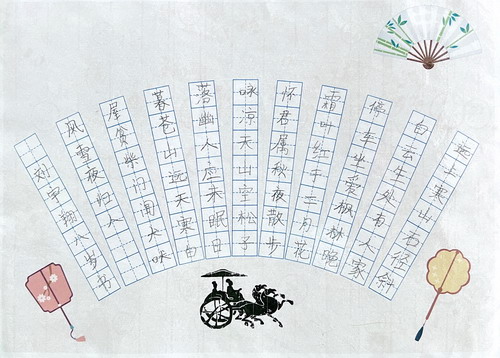 远上寒山石径斜
白云生处有人家
停车坐爱枫林晚
霜叶红于二月花
怀君属秋夜散步
咏凉天山空松子
落幽人应未眠日
暮苍山远天寒白
屋贫柴门闻犬吠
风雪夜归人
刘宇翔八岁书